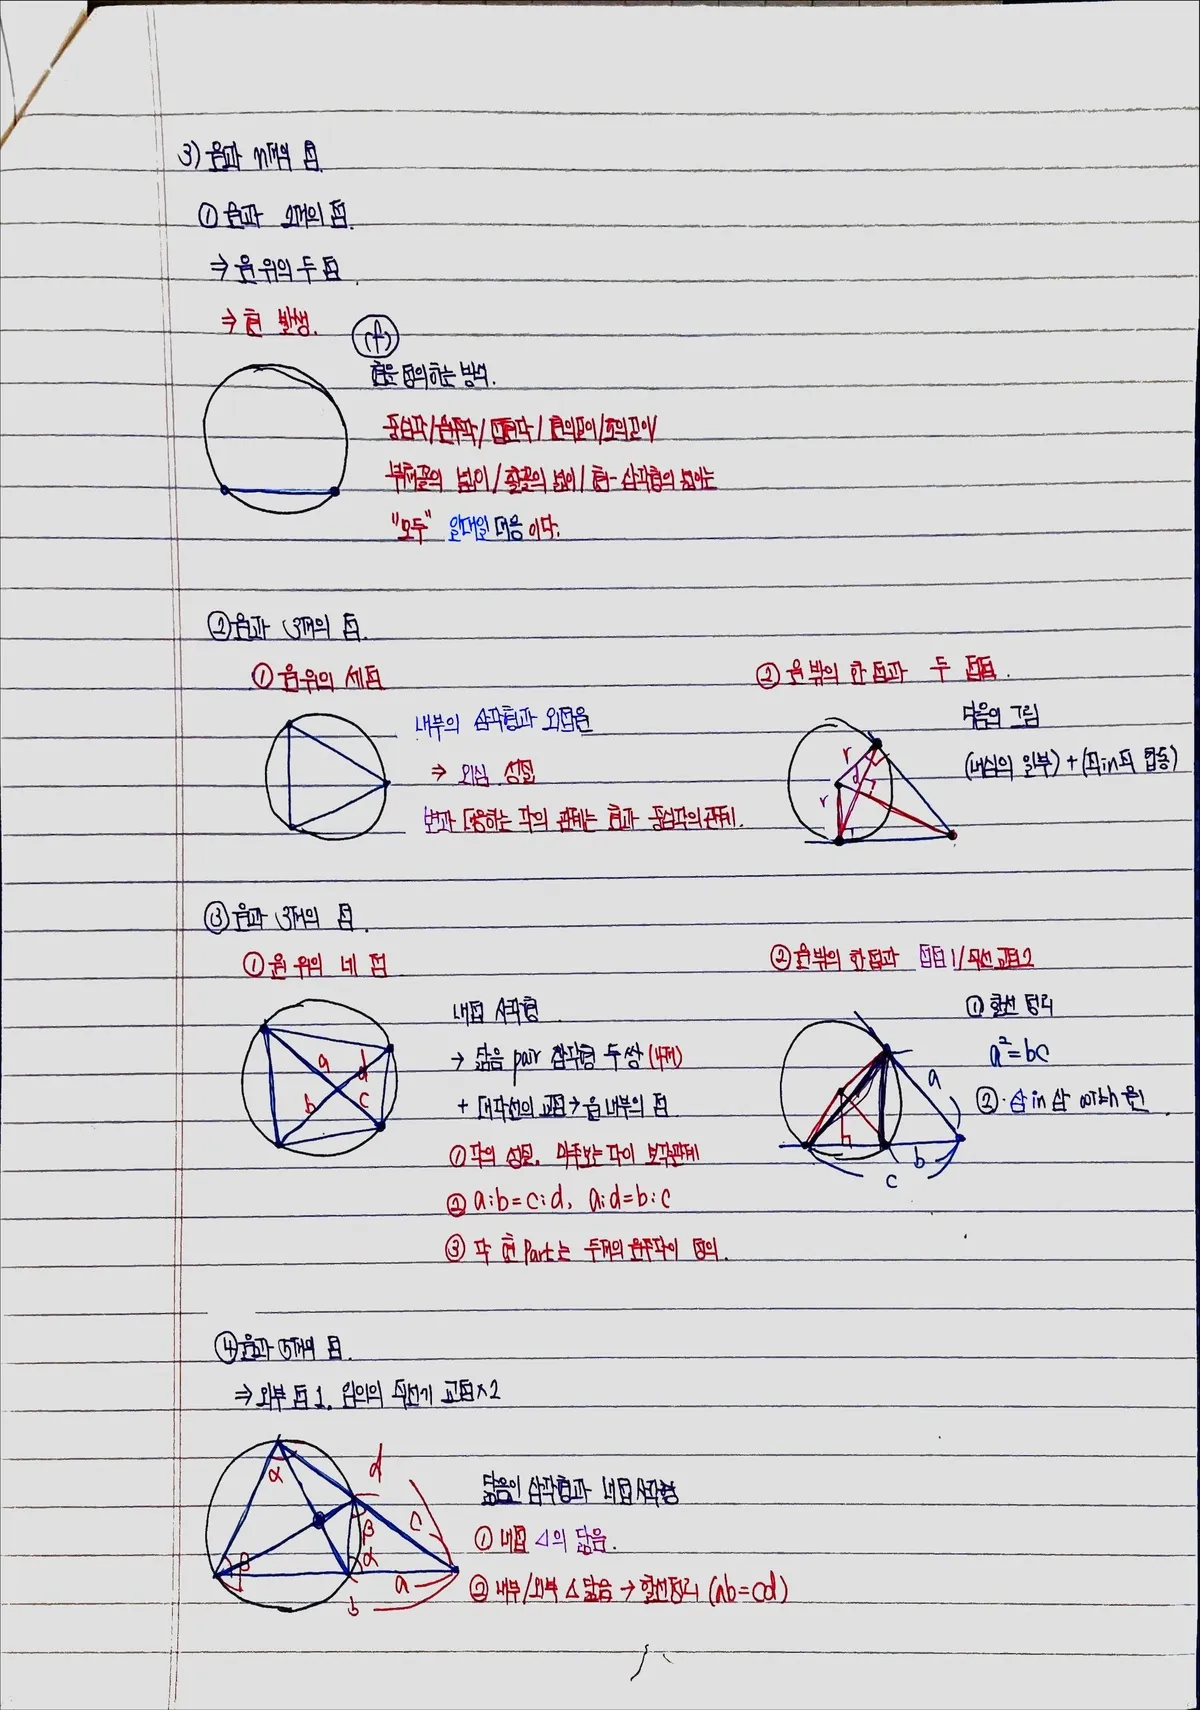 3) 원과 n개의 점
① 원과 2개의 점.
⇒ 원 위의 두 점
⇒ 현 발생.
(f)
현을 정의하는 방식.
중심각/원주각/접현각/현의길이/호의길이/
부채꼴의 넓이/활꼴의 넓이/현-삼각형의 넓이는
"모두" 일대일 대응 이다.
② 원과 3개의 점.
① 원위의 세점
내부의 삼각형과 외접원
⇒ 외심 성질
변과 대응하는 각의 관계는 현과 중심각의 관계.
② 원 밖의 한 점과 두 접점.
다음의 그림
(내심의 일부) + (직in직 합동)
r
r
d
③ 원과 3개의 점.
① 원 위의 네 점
a
d
b
c
내접 사각형
→ 닮음 pair 삼각형 두 쌍 (4개)
+ 대각선의 교점 → 원 내부의 점
① 각의 성질. 마주보는 각이 보각관계
② a:b=c:d, a:d=b:c
③ 각 현 Part는 두개의 원주각이 정의.
② 원 밖의 한 점과 접점1/직선 교점2
① 할선 정리
a²=bc
② 삼 in 삼 with 원
a
b
c
④ 원과 5개의 점.
⇒ 외부 점 1. 임의의 직선기 교점×2
α
d
β
c
β
α
a
b
닮음인 삼각형과 내접사각형
① 내접 △의 닮음.
② 내부/외부 △ 닮음 → 할선정리 (ab=cd)